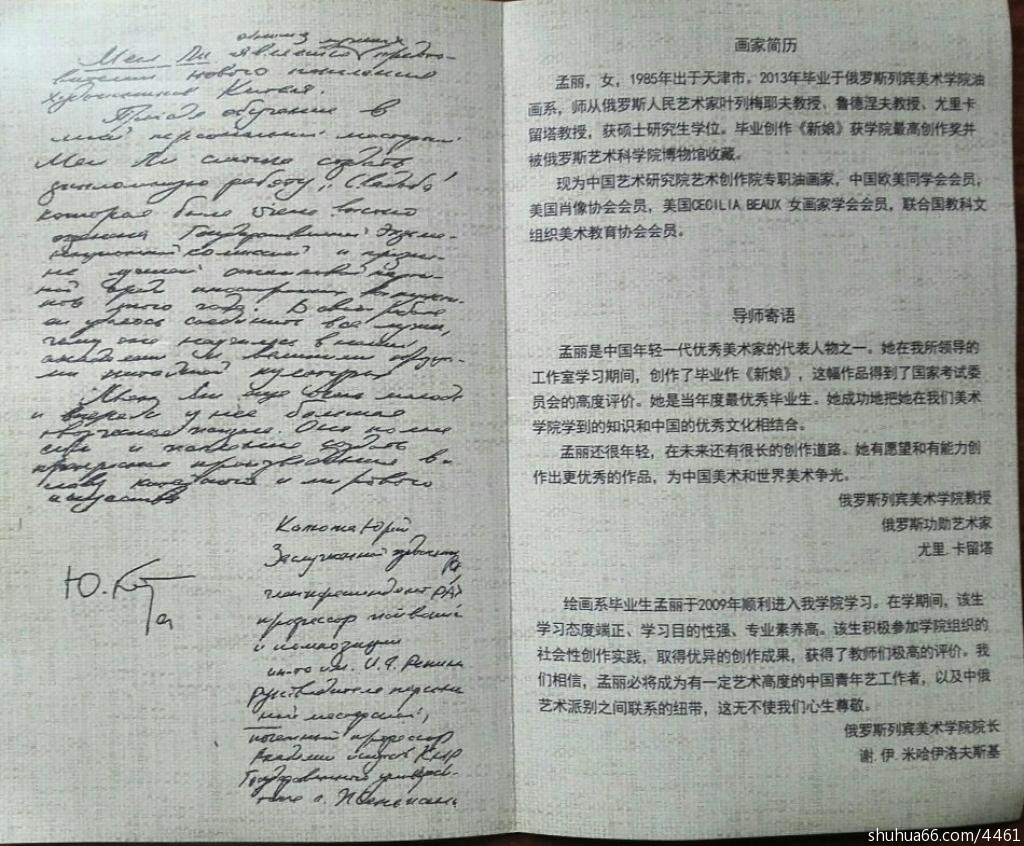 одним из лучших
Мен Ли является предста-
вителем нового поколения
художников Китая.
Пройдя обучение в
моей персональной мастерской
Мен Ли смогла создать
дипломную работу "Свадьба"
которая была очень высоко
оценена Государственной Экзаме-
национной комиссией и призна-
на лучшей
этого года. В своей работе
ей удалось соединить все лучшее,
чему она научилась в нашей
академии
китайской культуры
Мен Ли еще очень молода
и впереди у нее большая
творческая жизнь. Она полна
сил и желания создать
прекрасные произведения во
славу китайского и мирового
искусства
Калюта Юрий
Заслуженный художник РФ
член-корреспондент РАХ
профессор живописи
и композиции
ин-та им. И.Е. Репина
руководитель персональ
ной мастерской,
почетный профессор
Академии искусств КНР
Государственного универси-
тета г.
Ю. Кта
画家简历
孟丽，女，1985年出于天津市。2013年毕业于俄罗斯列宾美术学院油
画系，师从俄罗斯人民艺术家叶列梅耶夫教授、鲁德涅夫教授、尤里卡
留塔教授，获硕士研究生学位。毕业创作《新娘》获学院最高创作奖并
被俄罗斯艺术科学院博物馆收藏。
现为中国艺术研究院艺术创作院专职油画家，中国欧美同学会会员，
美国肖像协会会员，美国CECILIA BEAUX 女画家学会会员，联合国教科文
组织美术教育协会会员。
导师寄语
孟丽是中国年轻一代优秀美术家的代表人物之一。她在我所领导的
工作室学习期间，创作了毕业作《新娘》，这幅作品得到了国家考试委
员会的高度评价。她是当年度最优秀毕业生。她成功地把她在我们美术
学院学到的知识和中国的优秀文化相结合。
孟丽还很年轻，在未来还有很长的创作道路。她有愿望和有能力创
作出更优秀的作品，为中国美术和世界美术争光。
俄罗斯列宾美术学院教授
俄罗斯功勋艺术家
尤里.卡留塔
绘画系毕业生孟丽于2009年顺利进入我学院学习。在学期间，该生
学习态度端正、学习目的性强、专业素养高。该生积极参加学院组织的
社会性创作实践，取得优异的创作成果，获得了教师们极高的评价。我
们相信，孟丽必将成为有一定艺术高度的中国青年艺工作者，以及中俄
艺术派别之间联系的纽带，这无不使我们心生尊敬。
俄罗斯列宾美术学院院长
谢.伊.米哈伊洛夫斯基
shuhua66.com/4461